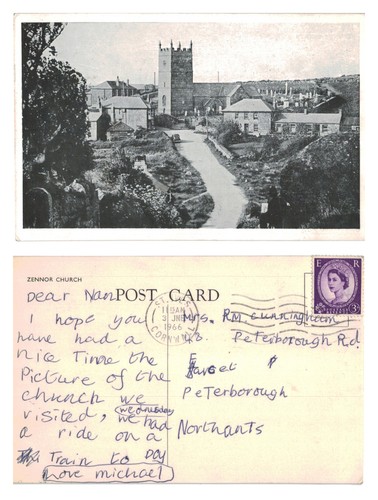 ZENNOR CHURCH
POST CARD
E R
3D
ST. IVES
1966
CORNWALL
Dear Nan
I hope you
have had a
nice Time the
Picture of the
church we
visited, wednesday we had
a ride on a
Train to Day
Love michael
Mrs. RM cunningham
Peterborough Rd.
Peterborough
Northants